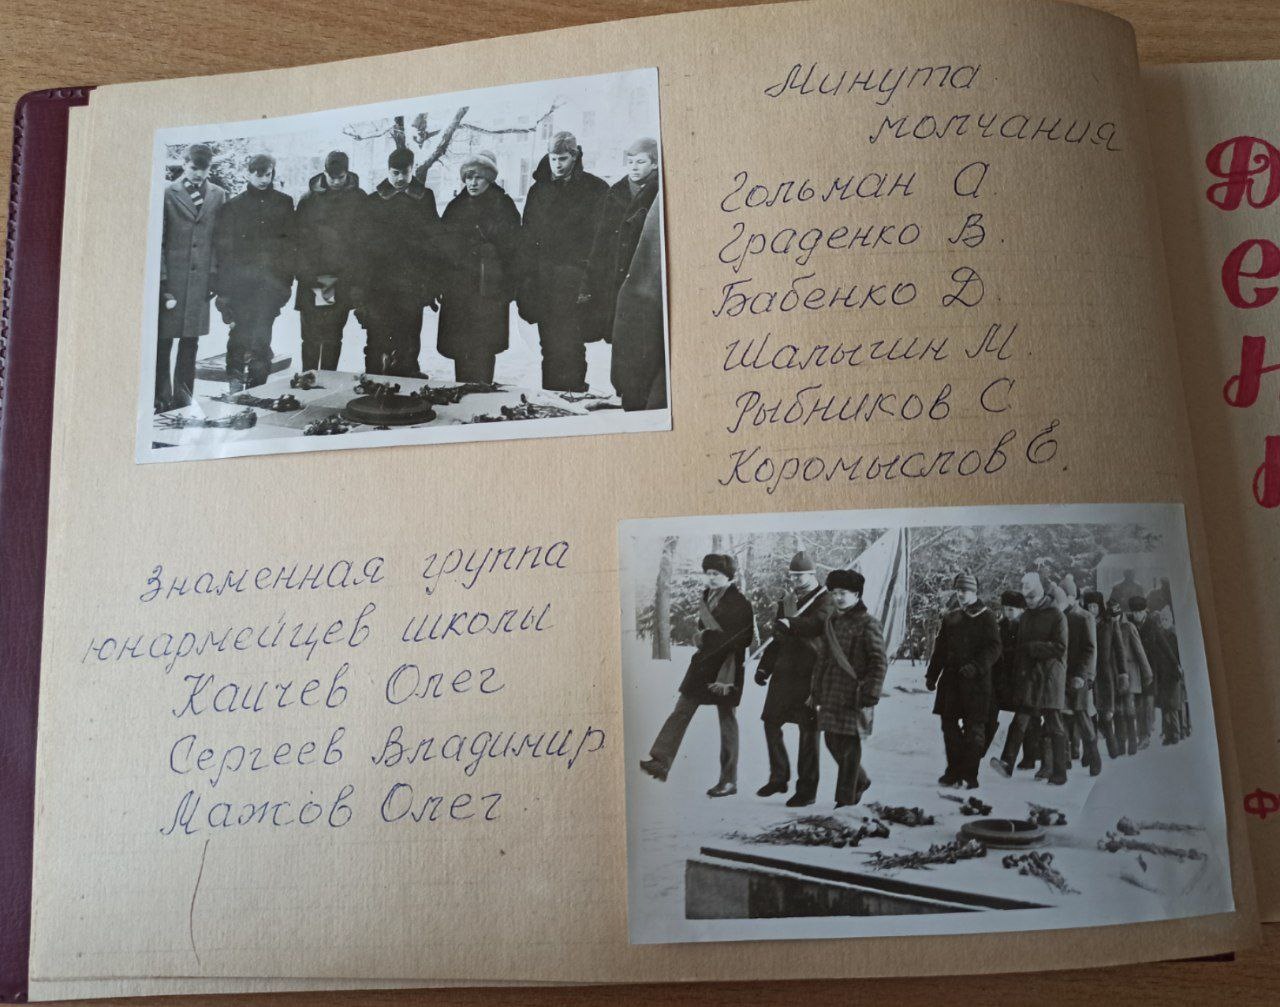 Минута
молчания
Гольман А.
Граденко В.
Бабенко Д.
Шалыгин М.
Рыбников С
Коромыслов Е.
Знаменная группа
юнармейцев школы
Каичев Олег
Сергеев Владимир
Мажов Олег
Д
е
н
ф